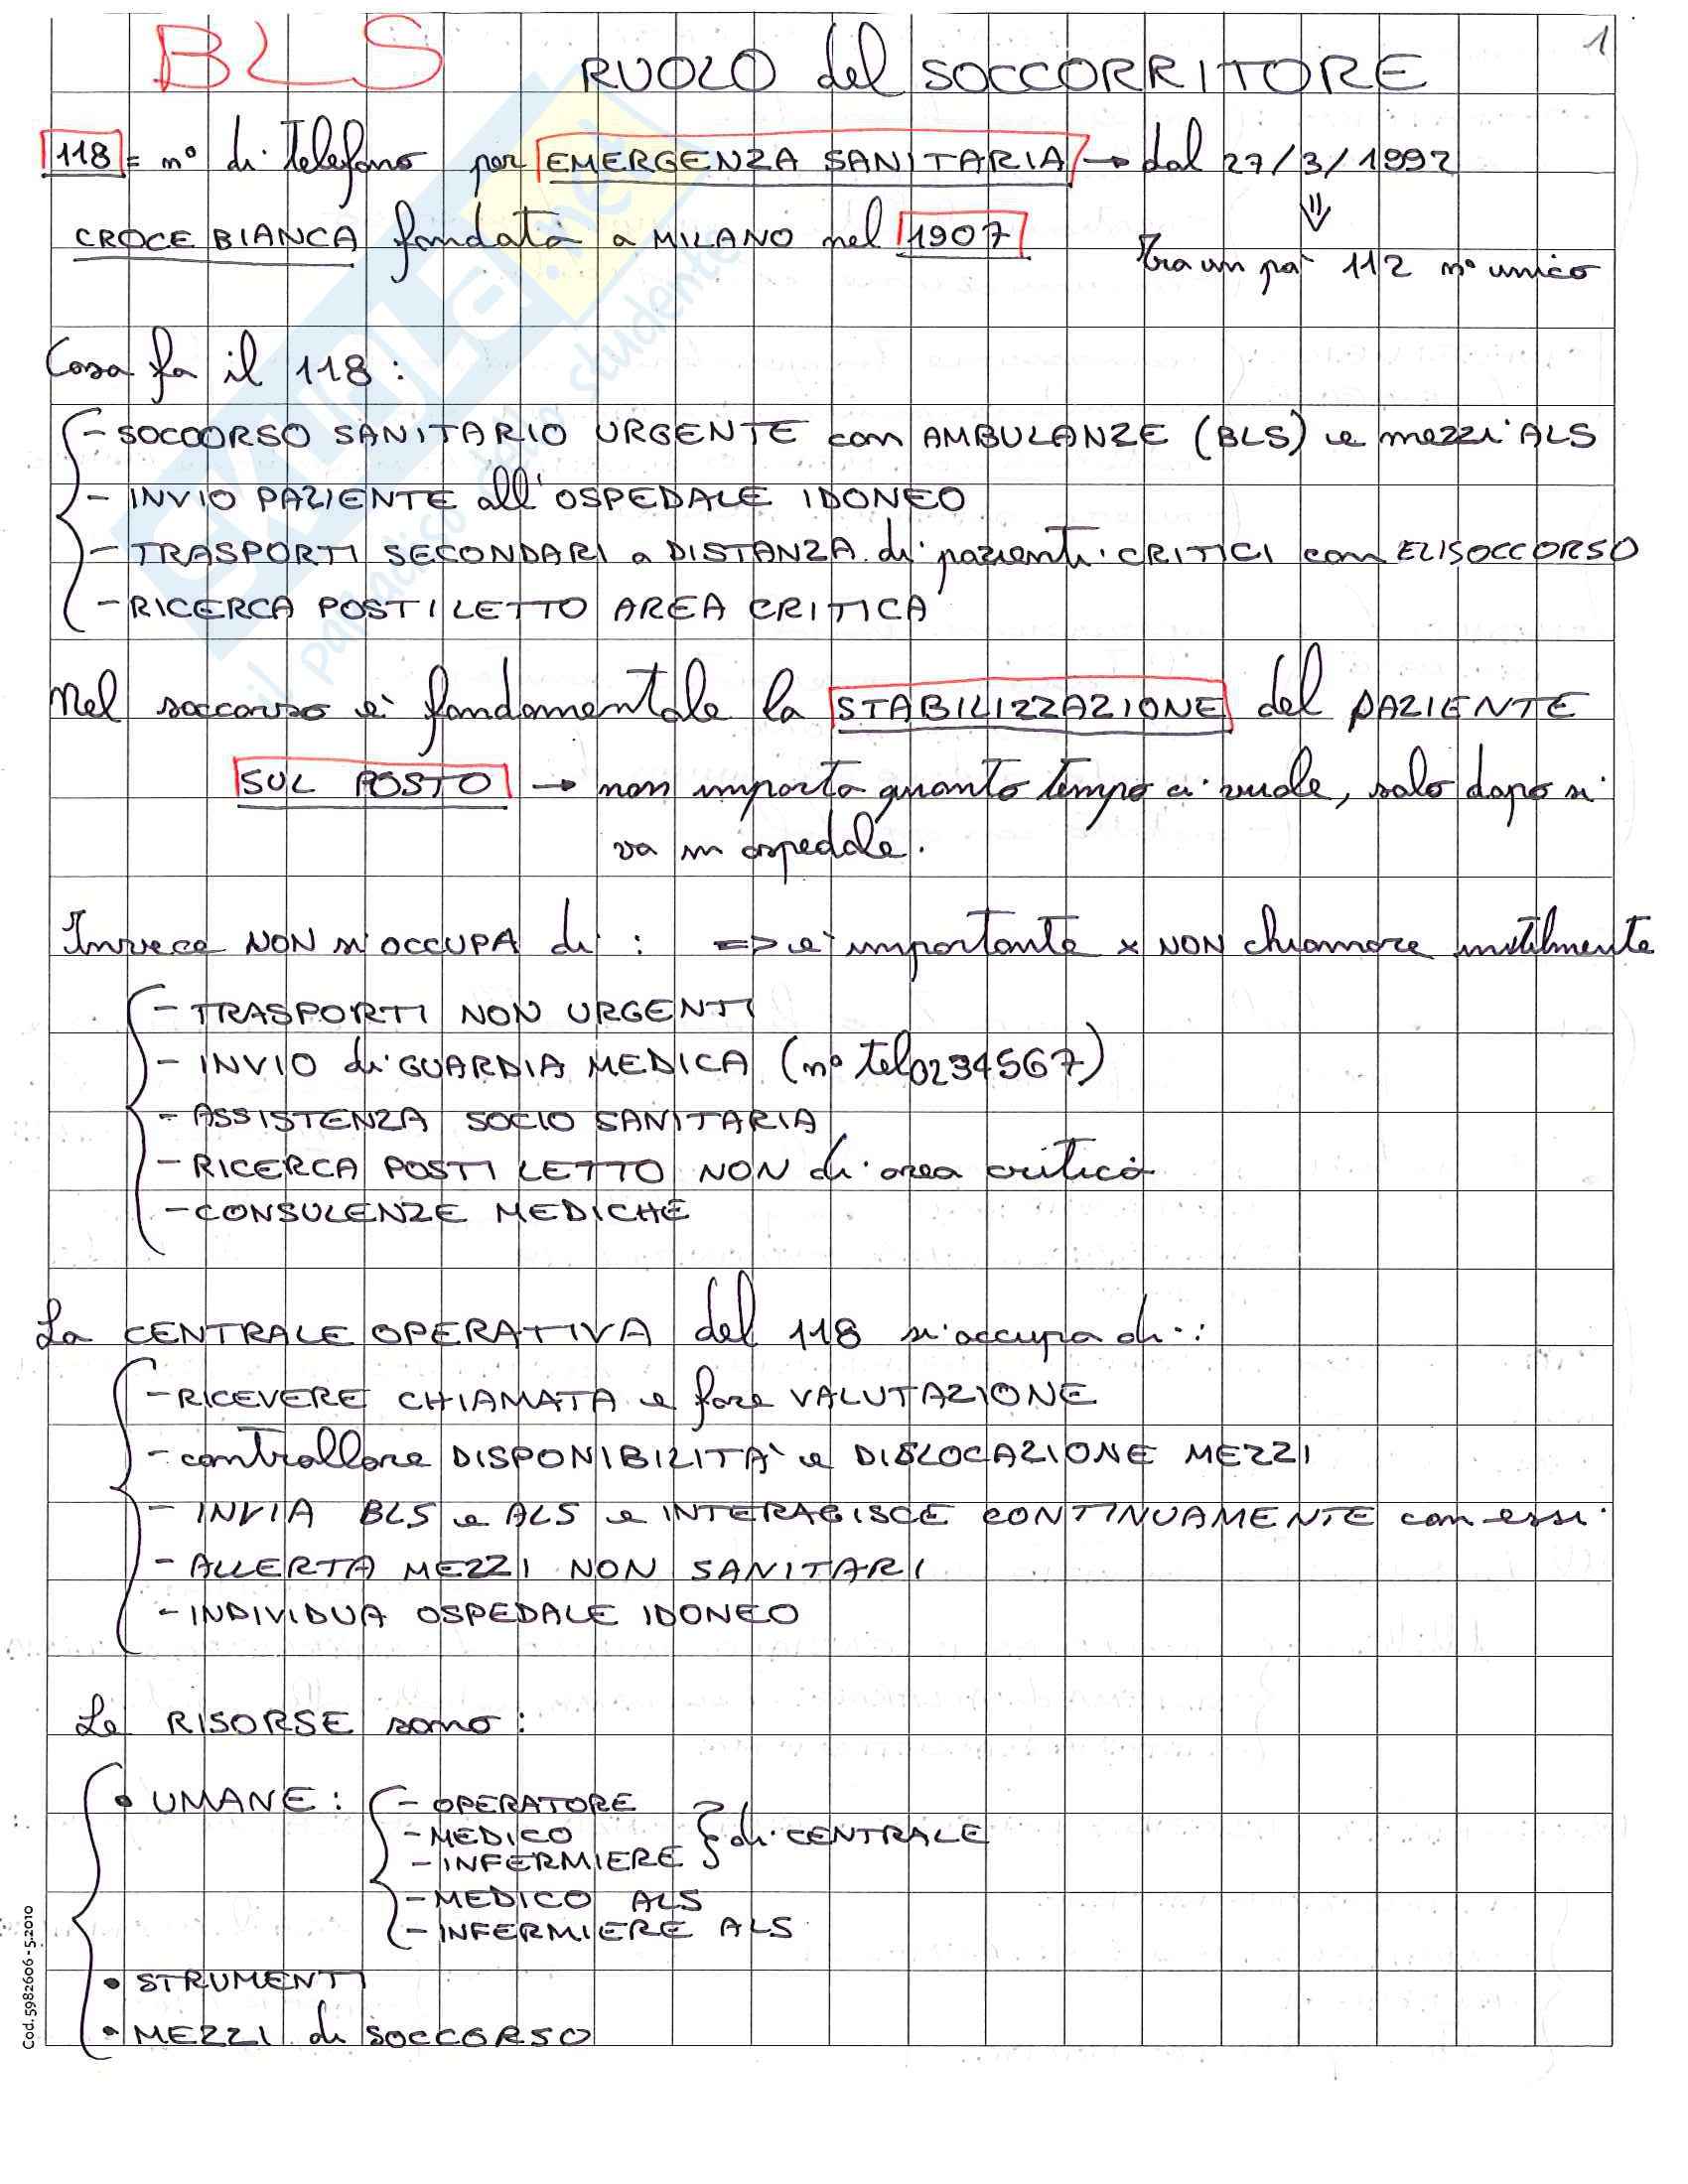 1
BLS RUOLO del SOCCORRITORE
118 = n° di telefono per EMERGENZA SANITARIA → dal 27/3/1992
⇓
CROCE BIANCA fondata a MILANO nel 1907
tra un po' 112 n° unico
Cosa fa il 118:
- SOCCORSO SANITARIO URGENTE con AMBULANZE (BLS) e mezzi ALS
- INVIO PAZIENTE all'OSPEDALE IDONEO
- TRASPORTI SECONDARI a DISTANZA di pazienti CRITICI con ELISOCCORSO
- RICERCA POSTI LETTO AREA CRITICA
Nel soccorso è fondamentale la STABILIZZAZIONE del PAZIENTE
SUL POSTO → non importa quanto tempo ci vuole, solo dopo si
va in ospedale.
Invece NON si OCCUPA di: => è importante x NON chiamare inutilmente
- TRASPORTI NON URGENTI
- INVIO di GUARDIA MEDICA (n° tel 0234567)
- ASSISTENZA SOCIO SANITARIA
- RICERCA POSTI LETTO NON di area critica
- CONSULENZE MEDICHE
La CENTRALE OPERATIVA del 118 si occupa di:
- RICEVERE CHIAMATA e fare VALUTAZIONE
- controllare DISPONIBILITÀ e DISLOCAZIONE MEZZI
- INVIA BLS e ALS e INTERAGISCE CONTINUAMENTE con essi
- ALLERTA MEZZI NON SANITARI
- INDIVIDUA OSPEDALE IDONEO
Le RISORSE sono:
• UMANE: - OPERATORE
- MEDICO } di CENTRALE
- INFERMIERE
- MEDICO ALS
- INFERMIERE ALS
• STRUMENTI
• MEZZI di SOCCORSO
Cod. 5982606 - 5.2010
SKUOLA.net
il paradiso dello studente